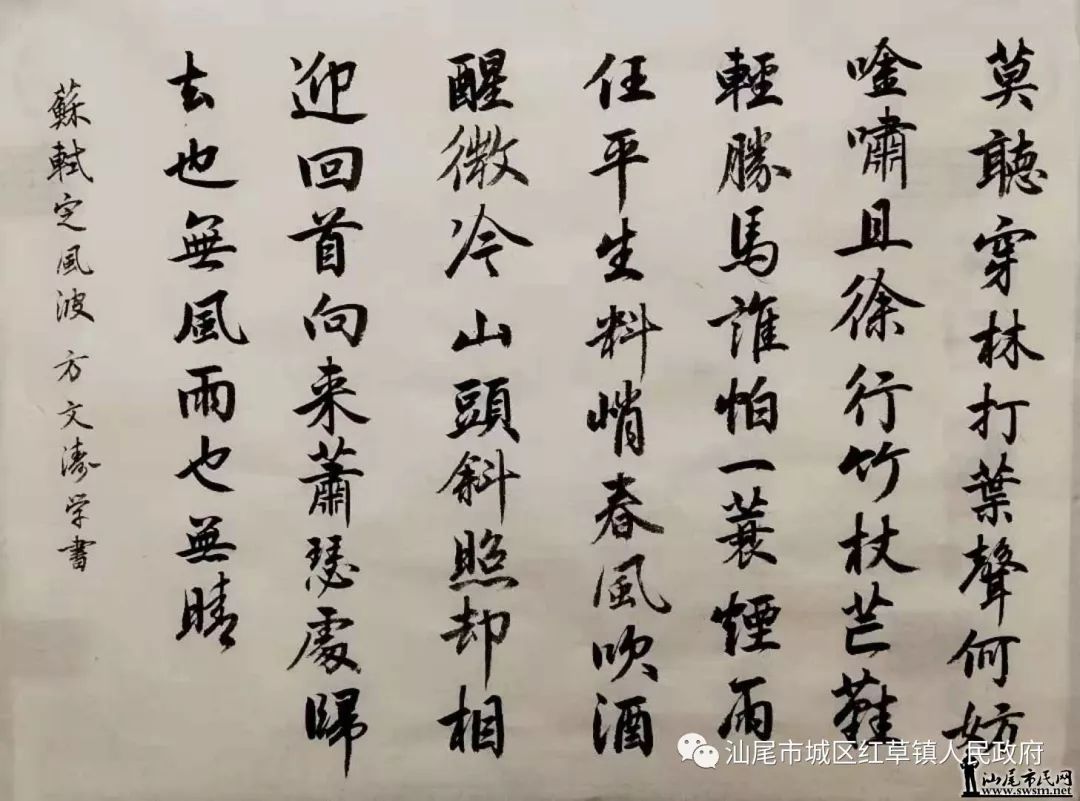 莫聽穿林打葉聲何妨
唫嘯且徐行竹杖芒鞋
輕勝馬誰怕一蓑煙雨
任平生料峭春風吹酒
醒微冷山頭斜照却相
迎回首向来蕭瑟處歸
去也無風雨也無晴
蘇軾定風波 方文濤学書
汕尾市城区红草镇人民政府
汕尾市民网
www.swsm.net